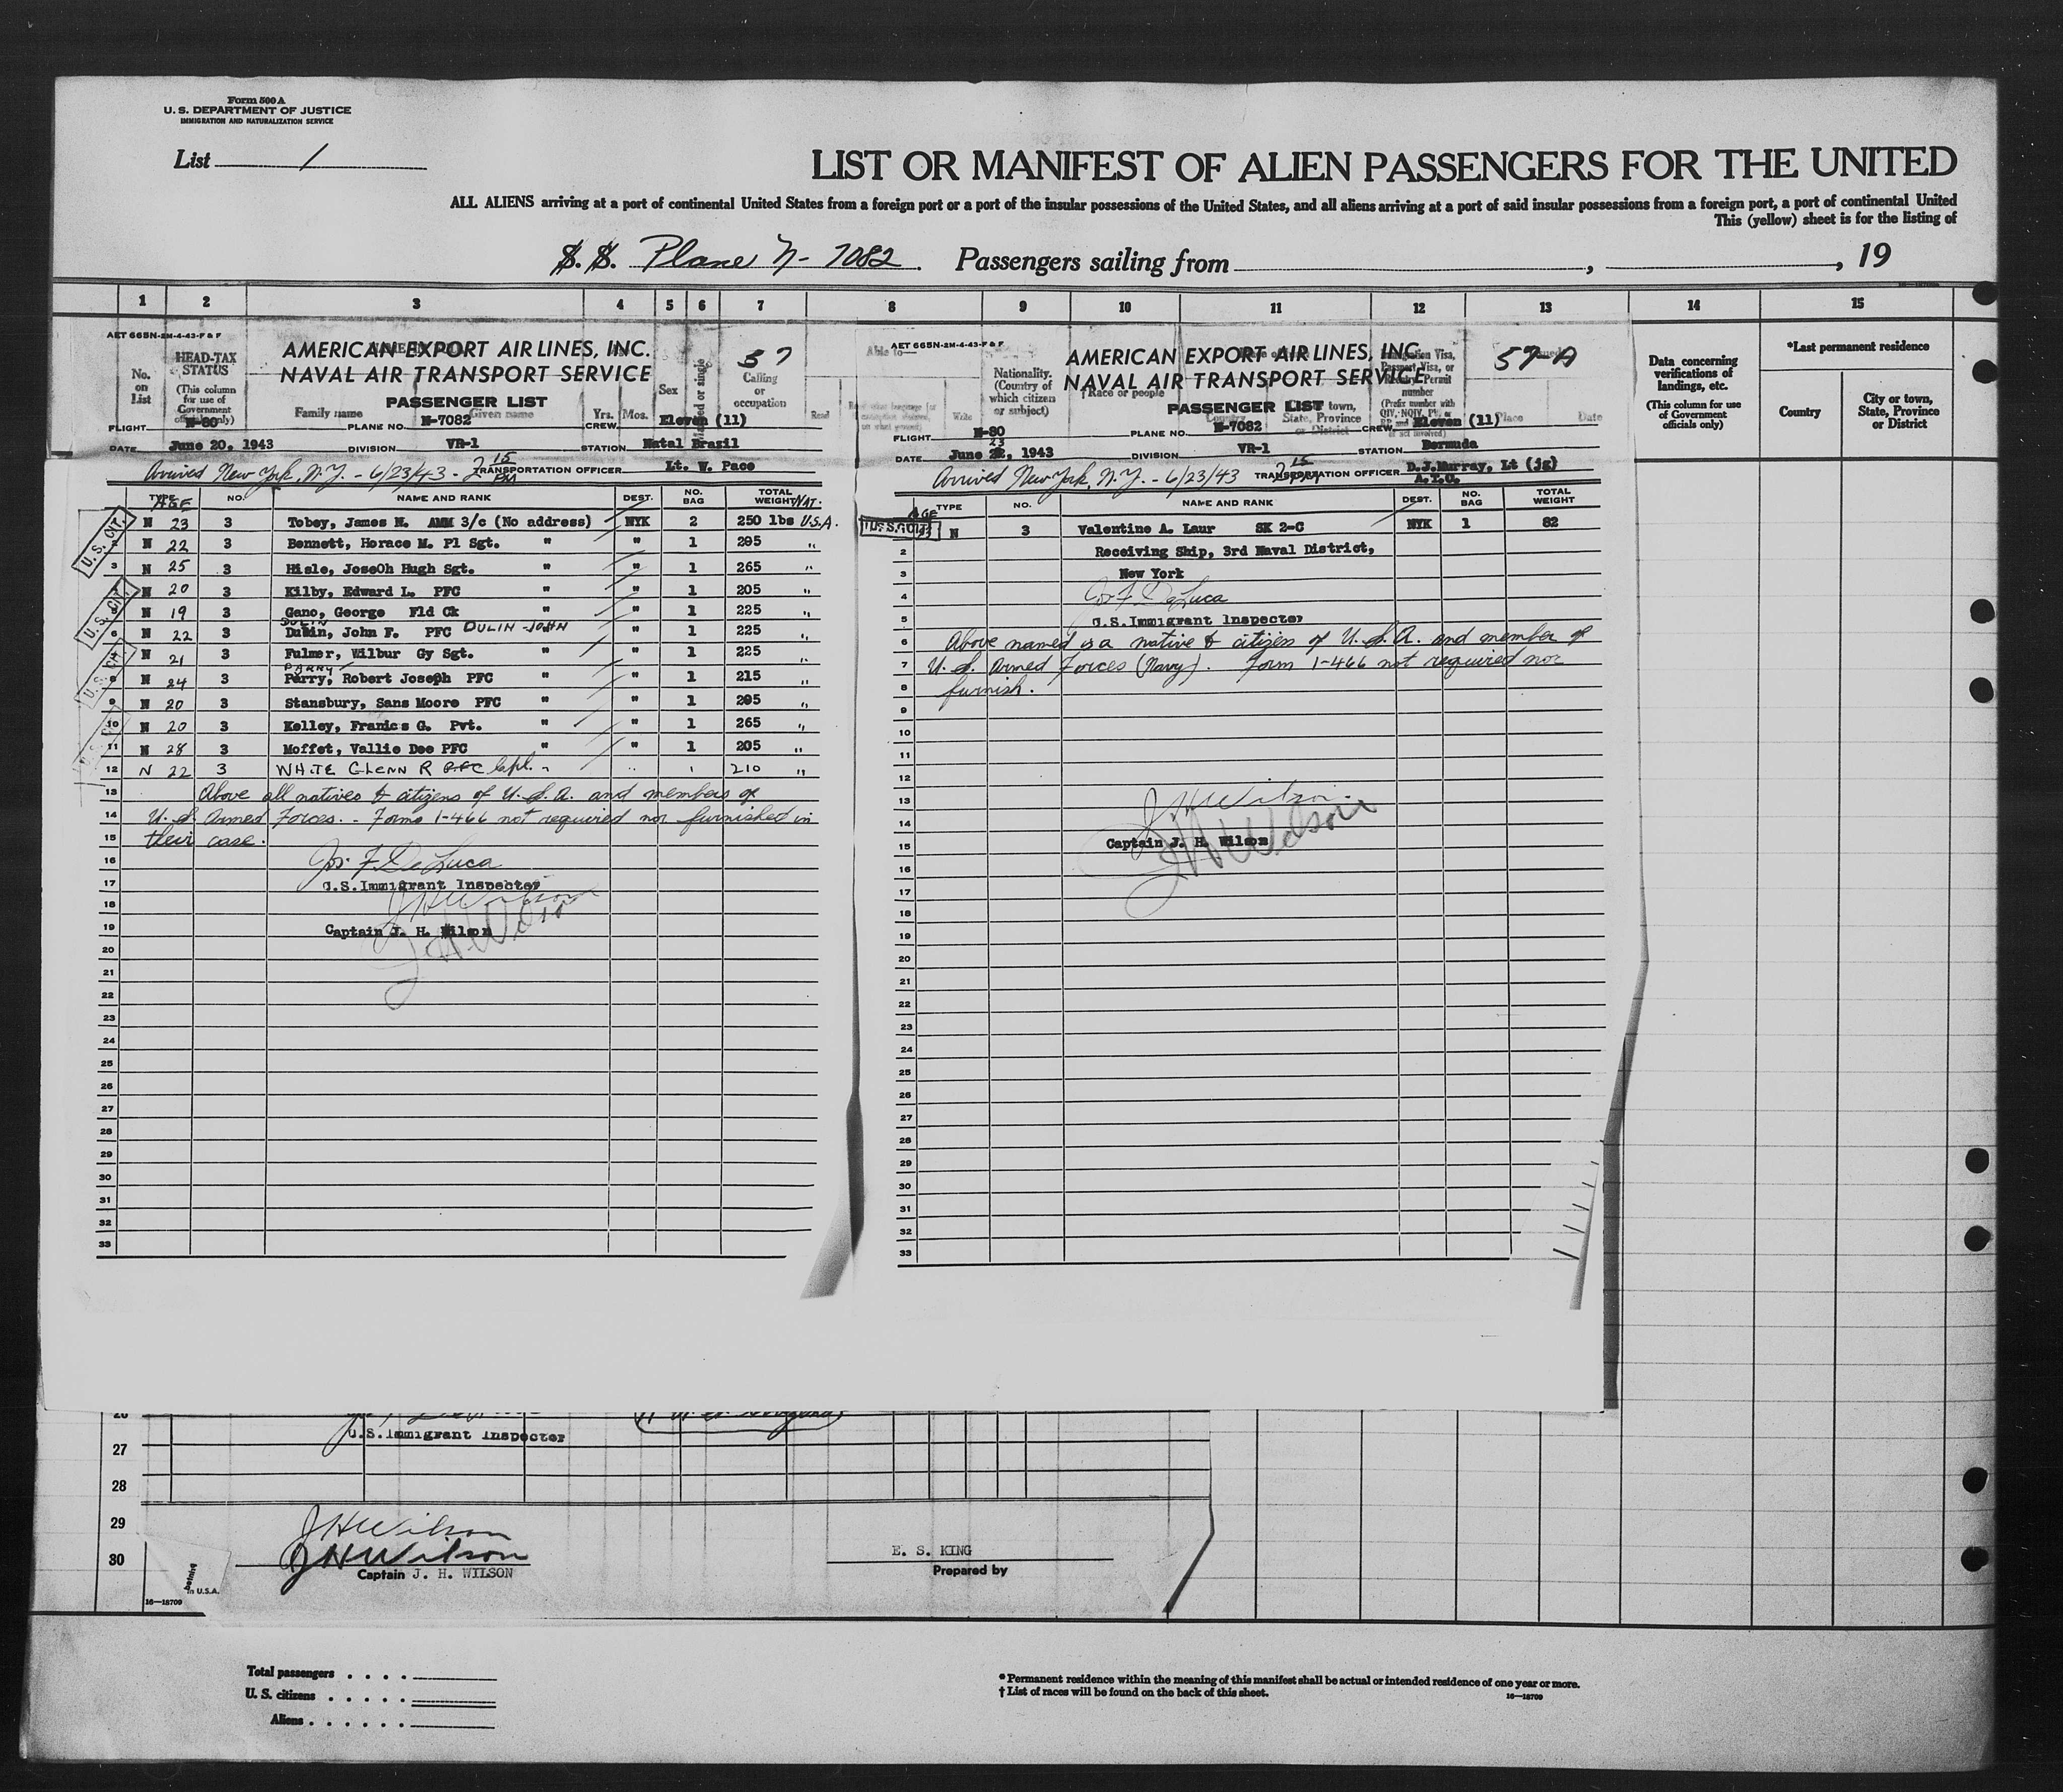 Form 500 A
U. S. DEPARTMENT OF JUSTICE
IMMIGRATION AND NATURALIZATION SERVICE
List 1
LIST OR MANIFEST OF ALIEN PASSENGERS FOR THE UNITED
ALL ALIENS arriving at a port of continental United States from a foreign port or a port of the insular possessions of the United States, and all aliens arriving at a port of said insular possessions from a foreign port, a port of continental United
This (yellow) sheet is for the listing of
S. S. Plane N- 7082 Passengers sailing from , , 19
1 2 3 4 5 6 7 8 9 10 11 12 13 14 15
AET 665N-2M-4-43-F & F
AMERICAN EXPORT AIRLINES, INC. 57
NAVAL AIR TRANSPORT SERVICE
PASSENGER LIST
No. on List
HEAD-TAX STATUS
(This column for use of Government officials only)
Family name Given name Yrs. Mos. Sex Calling or occupation
FLIGHT N-80 PLANE NO. N-7082 CREW Eleven (11)
DATE June 20, 1943 DIVISION VR-1 STATION Natal Brazil
Arrived New York, N.Y. - 6/23/43 - 2 15 PM TRANSPORTATION OFFICER Lt. W. Pace
TYPE AGE NO. NAME AND RANK DEST. NO. BAG TOTAL WEIGHT NAT.
N 23 3 Tobey, James N. AMM 3/c (No address) NYK 2 250 lbs U.S.A.
N 22 3 Bennett, Horace M. Pl Sgt. " " 1 295 "
3 N 25 3 Hisle, JoseOh Hugh Sgt. " " 1 265 "
N 20 3 Kilby, Edward L. PFC " " 1 205 "
N 19 3 Gano, George Fld Ck " " 1 225 "
6 N 22 3 Dubin, John F. PFC DULIN JOHN " " 1 225 "
DULIN
N 21 3 Fulmer, Wilbur Gy Sgt. " " 1 225 "
PARRY
N 24 3 Perry, Robert Joseph PFC " " 1 215 "
9 N 20 3 Stansbury, Sans Moore PFC " " 1 295 "
10 N 20 3 Kelley, Franics G. Pvt. " " 1 265 "
11 N 28 3 Moffet, Vallie Dee PFC " " 1 205 "
12 N 22 3 WHITE GLENN R PFC Cpl. " " 1 210 "
U.S. CIT.
U.S. CIT.
U.S. CIT.
13 Above all natives & citizens of U.S.A. and members of
14 U.S. Armed Forces. - Forms 1-466 not required nor furnished in
15 their case.
16 Jos. F. DeLuca
17 U.S.Immigrant Inspector
18 JHWilson
19 Captain J. H. Wilson
JHWilson
20
21
22
23
24
25
26
27
28
29
30
31
32
33
AET 665N-2M-4-43-F & F
AMERICAN EXPORT AIRLINES, INC. 57-A
NAVAL AIR TRANSPORT SERVICE
PASSENGER LIST
Able to—
Read Write
Nationality. (Country of which citizen or subject)
†Race or people
Place Date
FLIGHT N-80 PLANE NO. N-7082 CREW Eleven (11)
DATE June 23, 1943 DIVISION VR-1 STATION Bermuda
Arrived New York, N.Y. - 6/23/43 2 15 TRANSPORTATION OFFICER D.J.Murray, Lt (jg)
A.T.O.
AGE TYPE NO. NAME AND RANK DEST. NO. BAG TOTAL WEIGHT
N 3 Valentine A. Laur SK 2-C NYK 1 82
2 Receiving Ship, 3rd Naval District,
3 New York
4 Jos F. DeLuca
5 U.S.Immigrant Inspector
6 Above named is a native & citizen of U.S.A. and member of
7 U.S. Armed Forces (Navy). Form 1-466 not required nor
8 furnish.
9
10
11
12
13 JHWilson
14
15 Captain J. H. Wilson
JHWilson
16
17
18
19
20
21
22
23
24
25
26
27
28
29
30
31
32
33
Data concerning verifications of landings, etc.
(This column for use of Government officials only)
*Last permanent residence
Country
City or town, State, Province or District
U.S.Immigrant Inspector
27
28
29
30
JHWilson
JHWilson
Captain J. H. WILSON
E. S. KING
Prepared by
in U.S.A.
16—18709
Total passengers
U. S. citizens
Aliens
* Permanent residence within the meaning of this manifest shall be actual or intended residence of one year or more.
† List of races will be found on the back of this sheet.
16—18709